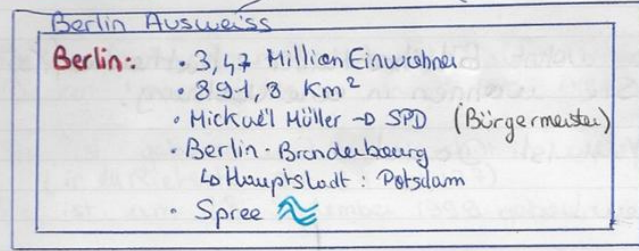 Berlin Ausweiss
Berlin:
• 3,47 Million Einwohner
• 891,8 Km²
• Mickaël Müller → SPD (Bürgermeister)
• Berlin - Brandebourg
↳ Hauptstadt : Potsdam
• Spree